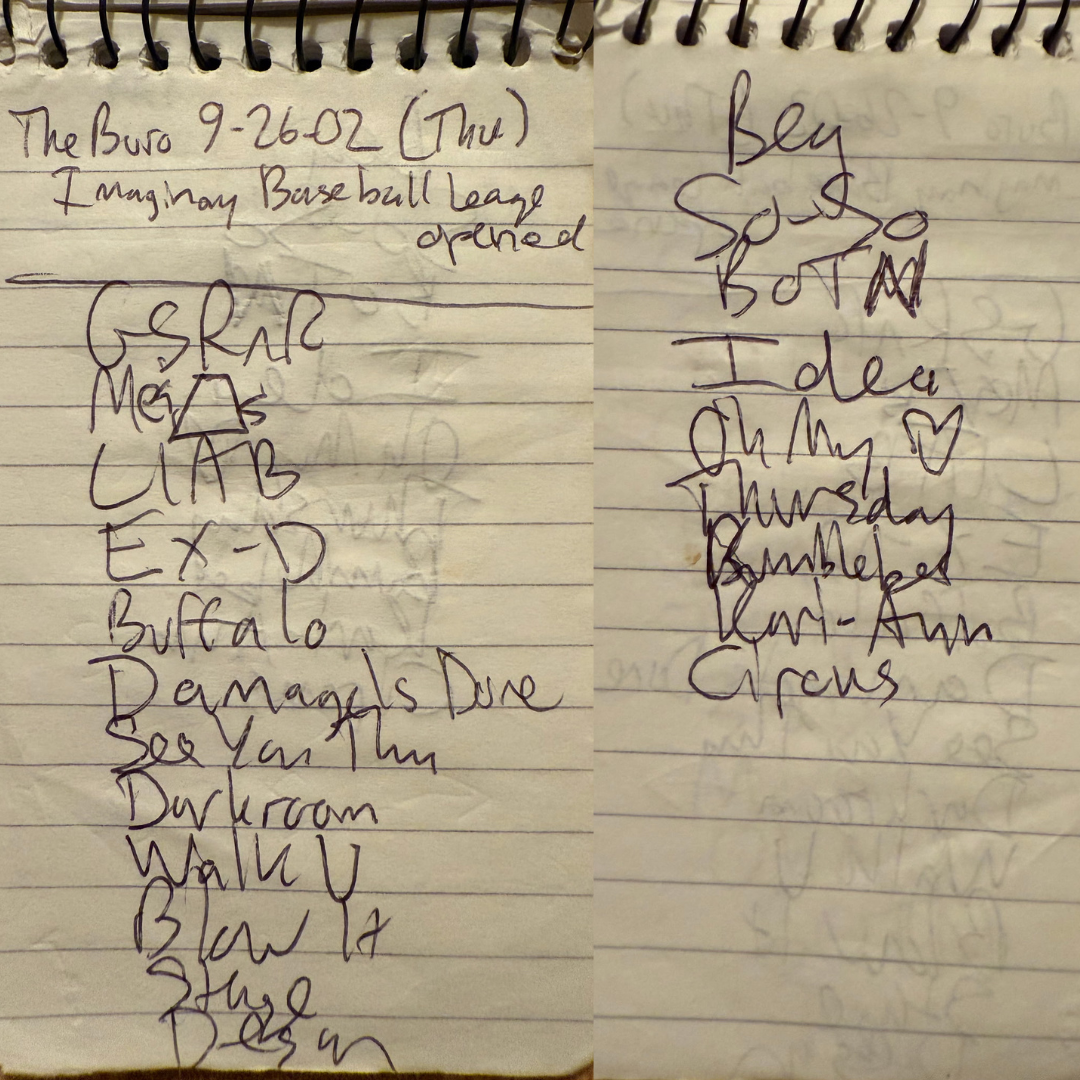 The Buro 9-26-02 (Thu)
Imaginary Baseball Leage
opened
GSRnR
UTAB
Ex-D
Buffalo
Damage Is Done
See You Thu
Darkroom
Walk U
Blow It
Stage
Design
Bey
So-So
BOTN
Idea
Oh My ♡
Thursday
Bumblebed
Karl-Ann
Circus